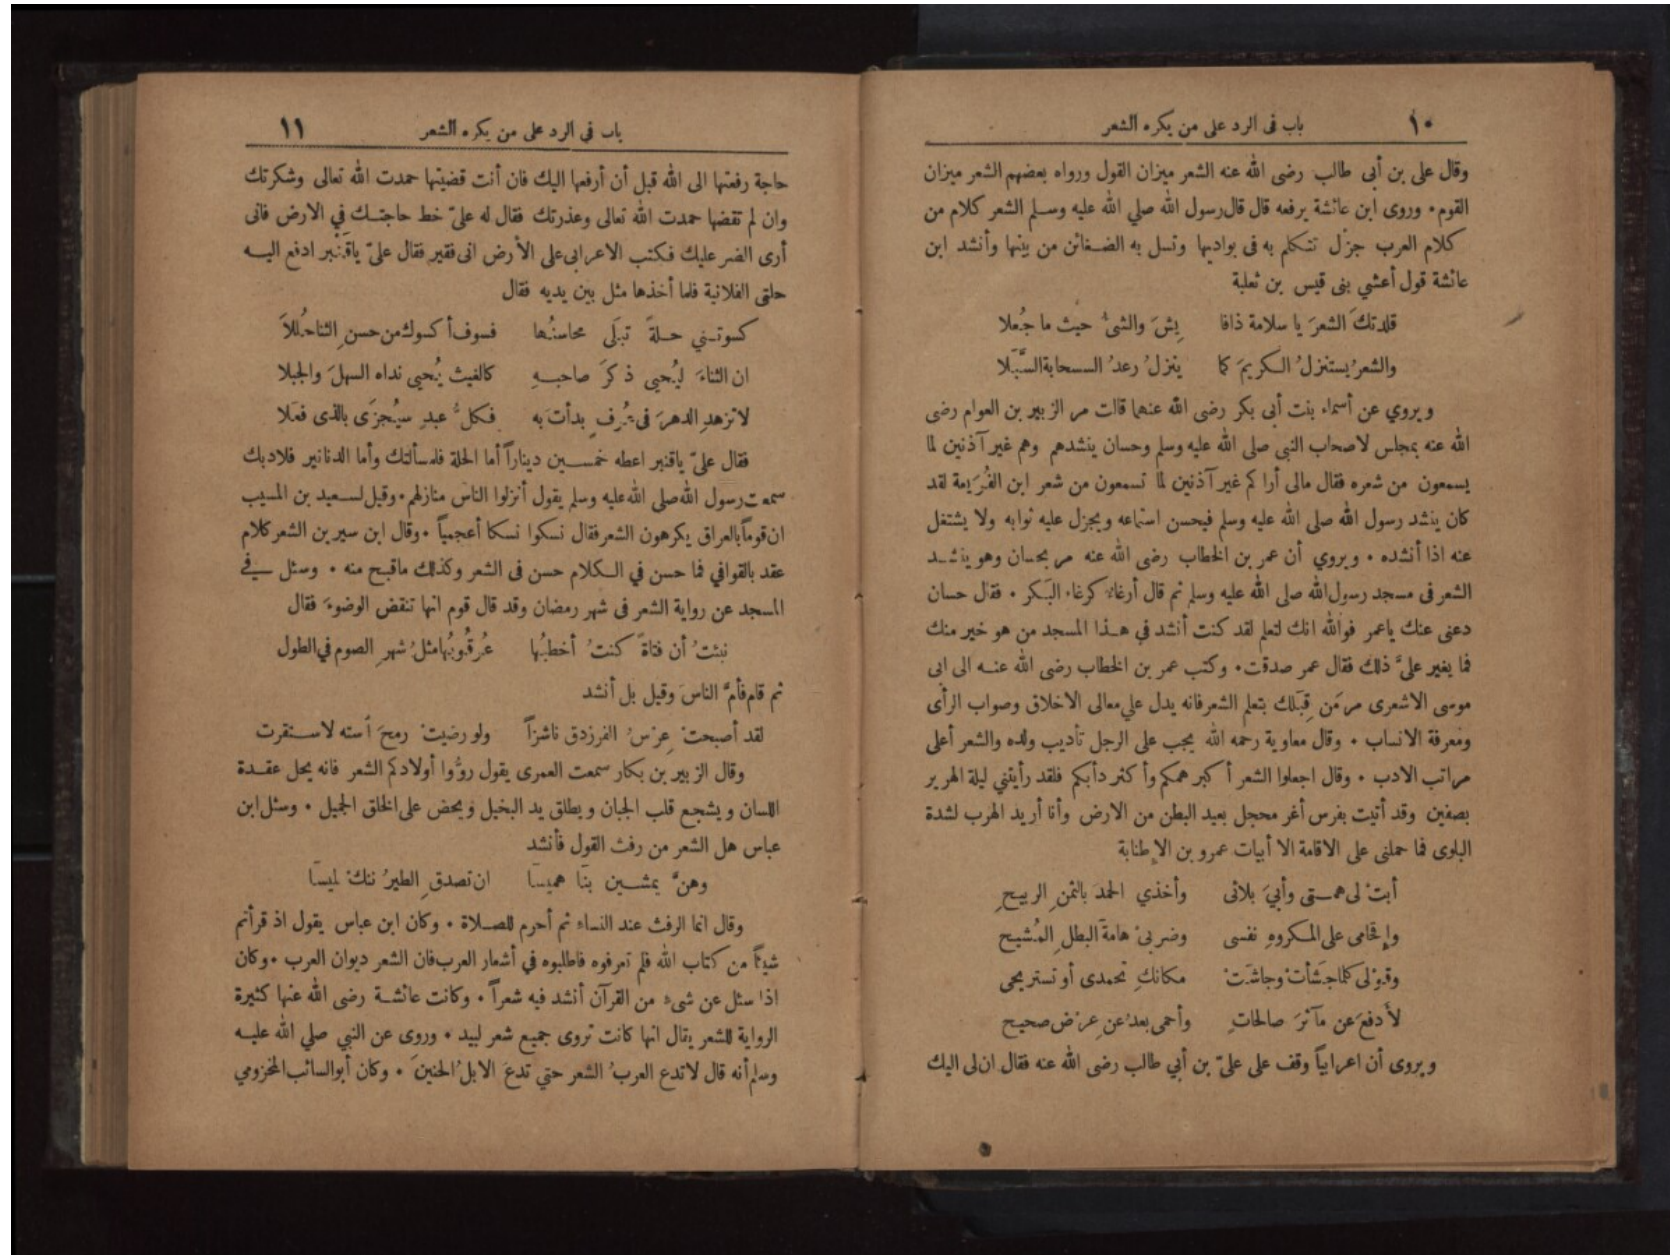 ١٠
باب في الرد على من يكره الشعر
وقال على بن أبى طالب رضى الله عنه الشعر ميزان القول ورواه بعضهم الشعر ميزان
القوم٠ وروى ابن عائشة يرفعه قال قال رسول الله صلي الله عليه وسلم الشعر كلام من
كلام العرب جزل تتكلم به فى بواديها وتسل به الضغائن من بينها وأنشد ابن
عائشة قول أعشي بنى قيس بن ثعلبة
قلدتكَ الشعرَ يا سلامة ذافا يِشَ والشئُ حيث ما جُعلا
والشعرُ يستنزلُ الكريمَ كا ينزلُ رعدُ السحابةالسَّبَلا
ويروي عن أسماء بنت أبى بكر رضى الله عنهما قالت مر الزبير بن العوام رضى
الله عنه بمجلس لاصحاب النبى صلى الله عليه وسلم وحسان ينشدهم وهم غير آذنين لما
يسمعون من شعره فقال مالى أراكم غير آذنين لما تسمعون من شعر ابن الفُرَيعة لقد
كان ينشد رسول الله صلى الله عليه وسلم فيحسن استماعه ويجزل عليه ثوابه ولا يشتغل
عنه اذا أنشده ٠ ويروي أن عمر بن الخطاب رضى الله عنه مر بحسان وهو ينشد
الشعر فى مسجد رسول الله صلى الله عليه وسلم ثم قال أرغاء كرغاء البَكر ٠ فقال حسان
دعنى عنك ياعمر فوالله انك لتعلم لقد كنت أنشد في هذا المسجد من هو خير منك
فما يغير علىَّ ذلك فقال عمر صدقت٠ وكتب عمر بن الخطاب رضى الله عنه الى ابى
موسى الاشعرى مر مَن قِبَلك بتعلم الشعر فانه يدل علي معالى الاخلاق وصواب الرأى
ومعرفة الانساب ٠ وقال معاوية رحمه الله يجب على الرجل تأديب ولده والشعر أعلى
مراتب الادب ٠ وقال اجعلوا الشعر أكبر همكم وأكثر دأبكم فلقد رأيتني ليلة الهرير
بصفين وقد أتيت بفرس أغر محجل بعيد البطن من الارض وأنا أريد الهرب لشدة
البلوى فما حملنى على الاقامة الا أبيات عمرو بن الإطنابة
أبتْ لى همتى وأبيَ بلائى وأخذي الحمدَ بالثمنِ الربيحِ
وإقحامى على المكروهِ نفسى وضربىْ هامةَ البطلِ المُشيح
وقولى كلما جشأتْ وجاشَتْ مكانكِ تحمدى أو تستريحى
لأدفعَ عن مآثرَ صالحاتٍ وأحمى بعدُ عن عِرْض صحيح
ويروى أن اعرابياً وقف على علىّ بن أبي طالب رضى الله عنه فقال ان لى اليك
١١
باب في الرد على من يكره الشعر
حاجة رفعتها الى الله قبل أن أرفعها اليك فان أنت قضيتها حمدت الله تعالى وشكرتك
وان لم تقضها حمدت الله تعالى وعذرتك فقال له علىّ خط حاجتك فِي الارض فانى
أرى الضر عليك فكتب الاعرابى على الأرض انى فقير فقال علىّ ياقَنْبر ادفع اليه
حلتى الفلانية فلما أخذها مثل بين يديه فقال
كسوتني حلةً تبلَى محاسنُها فسوف أكسوك من حسنِ الثناحُللاَ
ان الثناءَ ليُحيى ذكرَ صاحبهِ كالغيث يُحيى نداه السهلَ والجبلا
لاتزهدِ الدهرَ فى عُرفٍ بدأتَ به فكلُّ عبدٍ سيُجزَى بالذى فعَلا
فقال علىّ ياقنبر اعطه خمسين ديناراً أما الحلة فلمسألتك وأما الدنانير فلادبك
سمعت رسول الله صلى الله عليه وسلم يقول أنزلوا الناس منازلهم٠ وقيل لسعيد بن المسيب
ان قوماً بالعراق يكرهون الشعر فقال نسكوا نسكا أعجمياً ٠ وقال ابن سيرين الشعر كلام
عقد بالقوافي فما حسن في الكلام حسن فى الشعر وكذلك ماقبح منه ٠ وسئل في
المسجد عن رواية الشعر فى شهر رمضان وقد قال قوم انها تنقض الوضوءَ فقال
نبئتُ أن فتاةً كنتُ أخطبُها عُرقُوبُها مثلُ شهرِ الصوم في الطول
ثم قام فأمَّ الناسَ وقيل بل أنشد
لقد أصبحتْ عِرْسُ الفرزدقِ ناشزاً ولو رضيتْ رمحَ آسته لاستقرت
وقال الزبير بن بكار سمعت العمرى يقول روُّوا أولادكم الشعر فانه يحل عقدة
اللسان ويشجع قلب الجبان ويطلق يد البخيل ويحض على الخلق الجميل ٠ وسئل ابن
عباس هل الشعر من رفث القول فأنشد
وهنَّ يمشين بنَا هميسَا ان تصدقِ الطيرُ ننكْ لميسَا
وقال انما الرفث عند النساء ثم أحرم للصلاة ٠ وكان ابن عباس يقول اذ قرأتم
شيئاً من كتاب الله فلم تعرفوه فاطلبوه في أشعار العرب فان الشعر ديوان العرب ٠ وكان
اذا سئل عن شىء من القرآن أنشد فيه شعراً ٠ وكانت عائشة رضى الله عنها كثيرة
الرواية للشعر يقال انها كانت تروى جميع شعر لبيد ٠ وروى عن النبي صلي الله عليه
وسلم أنه قال لاتدع العربُ الشعر حتي تدعَ الابلُ الحنينَ ٠ وكان أبو السائب المخزومي